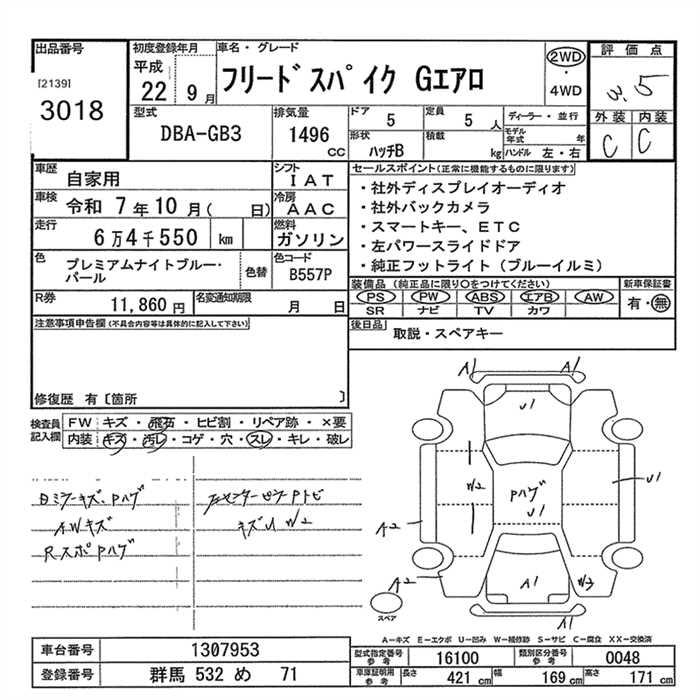 出品番号 初度登録年月 車名・グレード 評価点
[2139] 3018
平成 22年 9月
フリードスパイク Gエアロ
2WD・4WD
3.5
型式 DBA-GB3
排気量 1496 CC
ドア 5 定員 5人
形状 ハッチB 積載 kg
ディーラー・並行
モデル年式 年
ハンドル 左・右
外装 内装
C C
車歴 自家用
シフト IAT
車検 令和 7年10月( 日)
冷房 AAC
走行 6万4千550 km
燃料 ガソリン
色 プレミアムナイトブルー・パール
色替
色コード B557P
R券 11,860円
名変通知期限 月 日
セールスポイント(正常に機能するものに限ります)
・社外ディスプレイオーディオ
・社外バックカメラ
・スマートキー、ETC
・左パワースライドドア
・純正フットライト(ブルーイルミ)
装備品(純正品に限り○をつけてください) 新車保証書
PS PW ABS エアB AW 有・無
SR ナビ TV カワ
後日品 取説・スペアキー
注意事項申告欄(不具合内容等は具体的に記入して下さい)
修復歴 有〔箇所 〕
検査員記入欄
FW キズ・飛石・ヒビ割・リペア跡・×要
内装 キズ・汚レ・コゲ・穴・スレ・キレ・破レ
AWキズ
RスポPハゲ
キズU W2
A1 A1
U1
W2
Pハゲ
U1
U1
A2
A2
A1
W3
A1 A1
スペア
A-キズ E-エクボ U-凹み W-補修跡 S-サビ C-腐食 XX-交換済
車台番号 1307953
登録番号 群馬 532 め 71
型式指定番号 参考 16100
類別区分番号 参考 0048
車庫証明用 参考 長さ 421 cm 幅 169 cm 高さ 171 cm